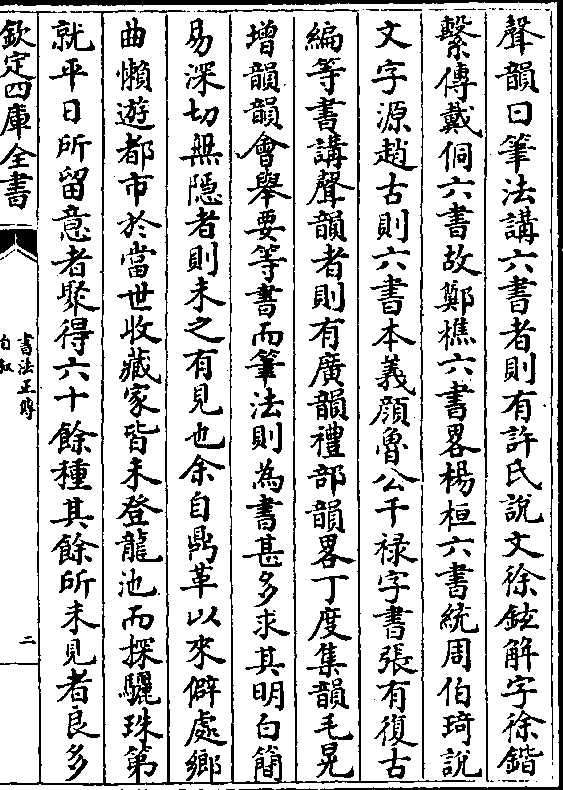 聲韻曰筆法講六書者則有許氏說文徐鉉解字徐鍇
繫傳戴侗六書故鄭樵六書畧楊桓六書統周伯琦說
文字源趙古則六書本義顔魯公千禄字書張有復古
編等書講聲韻者則有廣韻禮部韻畧丁度集韻毛晃
増韻韻會舉要等書而筆法則為書甚多求其明白簡
易深切無隱者則未之有見也余自鼎革以來僻處鄉
曲懶遊都市於當世收藏家皆未登龍池而探驪珠第
就平日所留意者聚得六十餘種其餘所未見者良多
欽定四庫全書
書法正傳
自叙
二